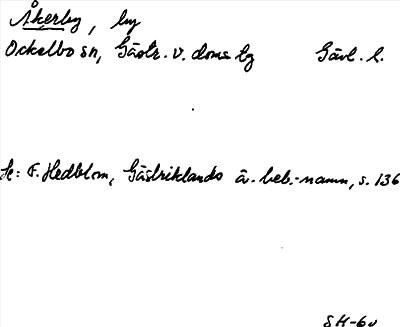 Åkerby, by
Ockelbo sn, Gästr. v. doms tg Gävl. l.
Se: F. Hedblom, Gästriklands ä. beb.-namn, s. 136
SH-60